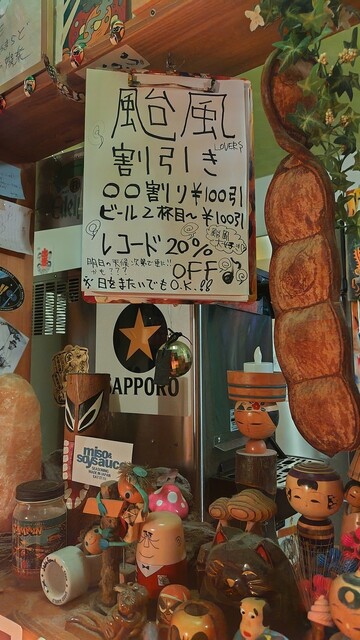 颱風
LOVERS
割引き
〇〇割り¥100引
ビール2杯目〜¥100引
レコード20%
OFF
明日の天候次第で更に!!
かも???
※日をまたいでもO.K.!!
SAPPORO
miso &
soysauce